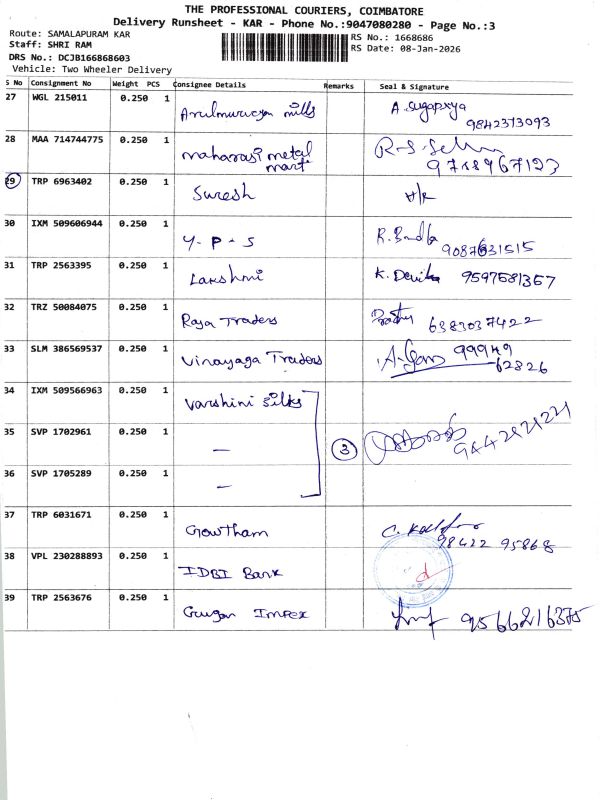 THE PROFESSIONAL COURIERS, COIMBATORE
Delivery Runsheet - KAR - Phone No.:9047080280 - Page No.:3
Route: SAMALAPURAM KAR
Staff: SHRI RAM
DRS No.: DCJB166868603
Vehicle: Two Wheeler Delivery
RS No.: 1668686
RS Date: 08-Jan-2026
S No Consignment No Weight PCS Consignee Details Remarks Seal & Signature
27 WGL 215011 0.250 1 Arulmurugan mills
9842373093
28 MAA 714744775 0.250 1 maharasi metal mart
29 TRP 6963402 0.250 1 Suresh
30 IXM 509606944 0.250 1 Y. P. S
31 TRP 2563395 0.250 1 Lakshmi K. Devika 9597581357
32 TRZ 50084075 0.250 1 Raja Traders 6383037422
33 SLM 386569537 0.250 1 Vinayaga Traders 99949
62826
34 IXM 509566963 0.250 1 Varshini Silks
35 SVP 1702961 0.250 1 — 3
36 SVP 1705289 0.250 1 —
37 TRP 6031671 0.250 1 Gowtham
98422 95868
38 VPL 230288893 0.250 1 IDBI Bank
39 TRP 2563676 0.250 1 Gugan Impex 9566216375